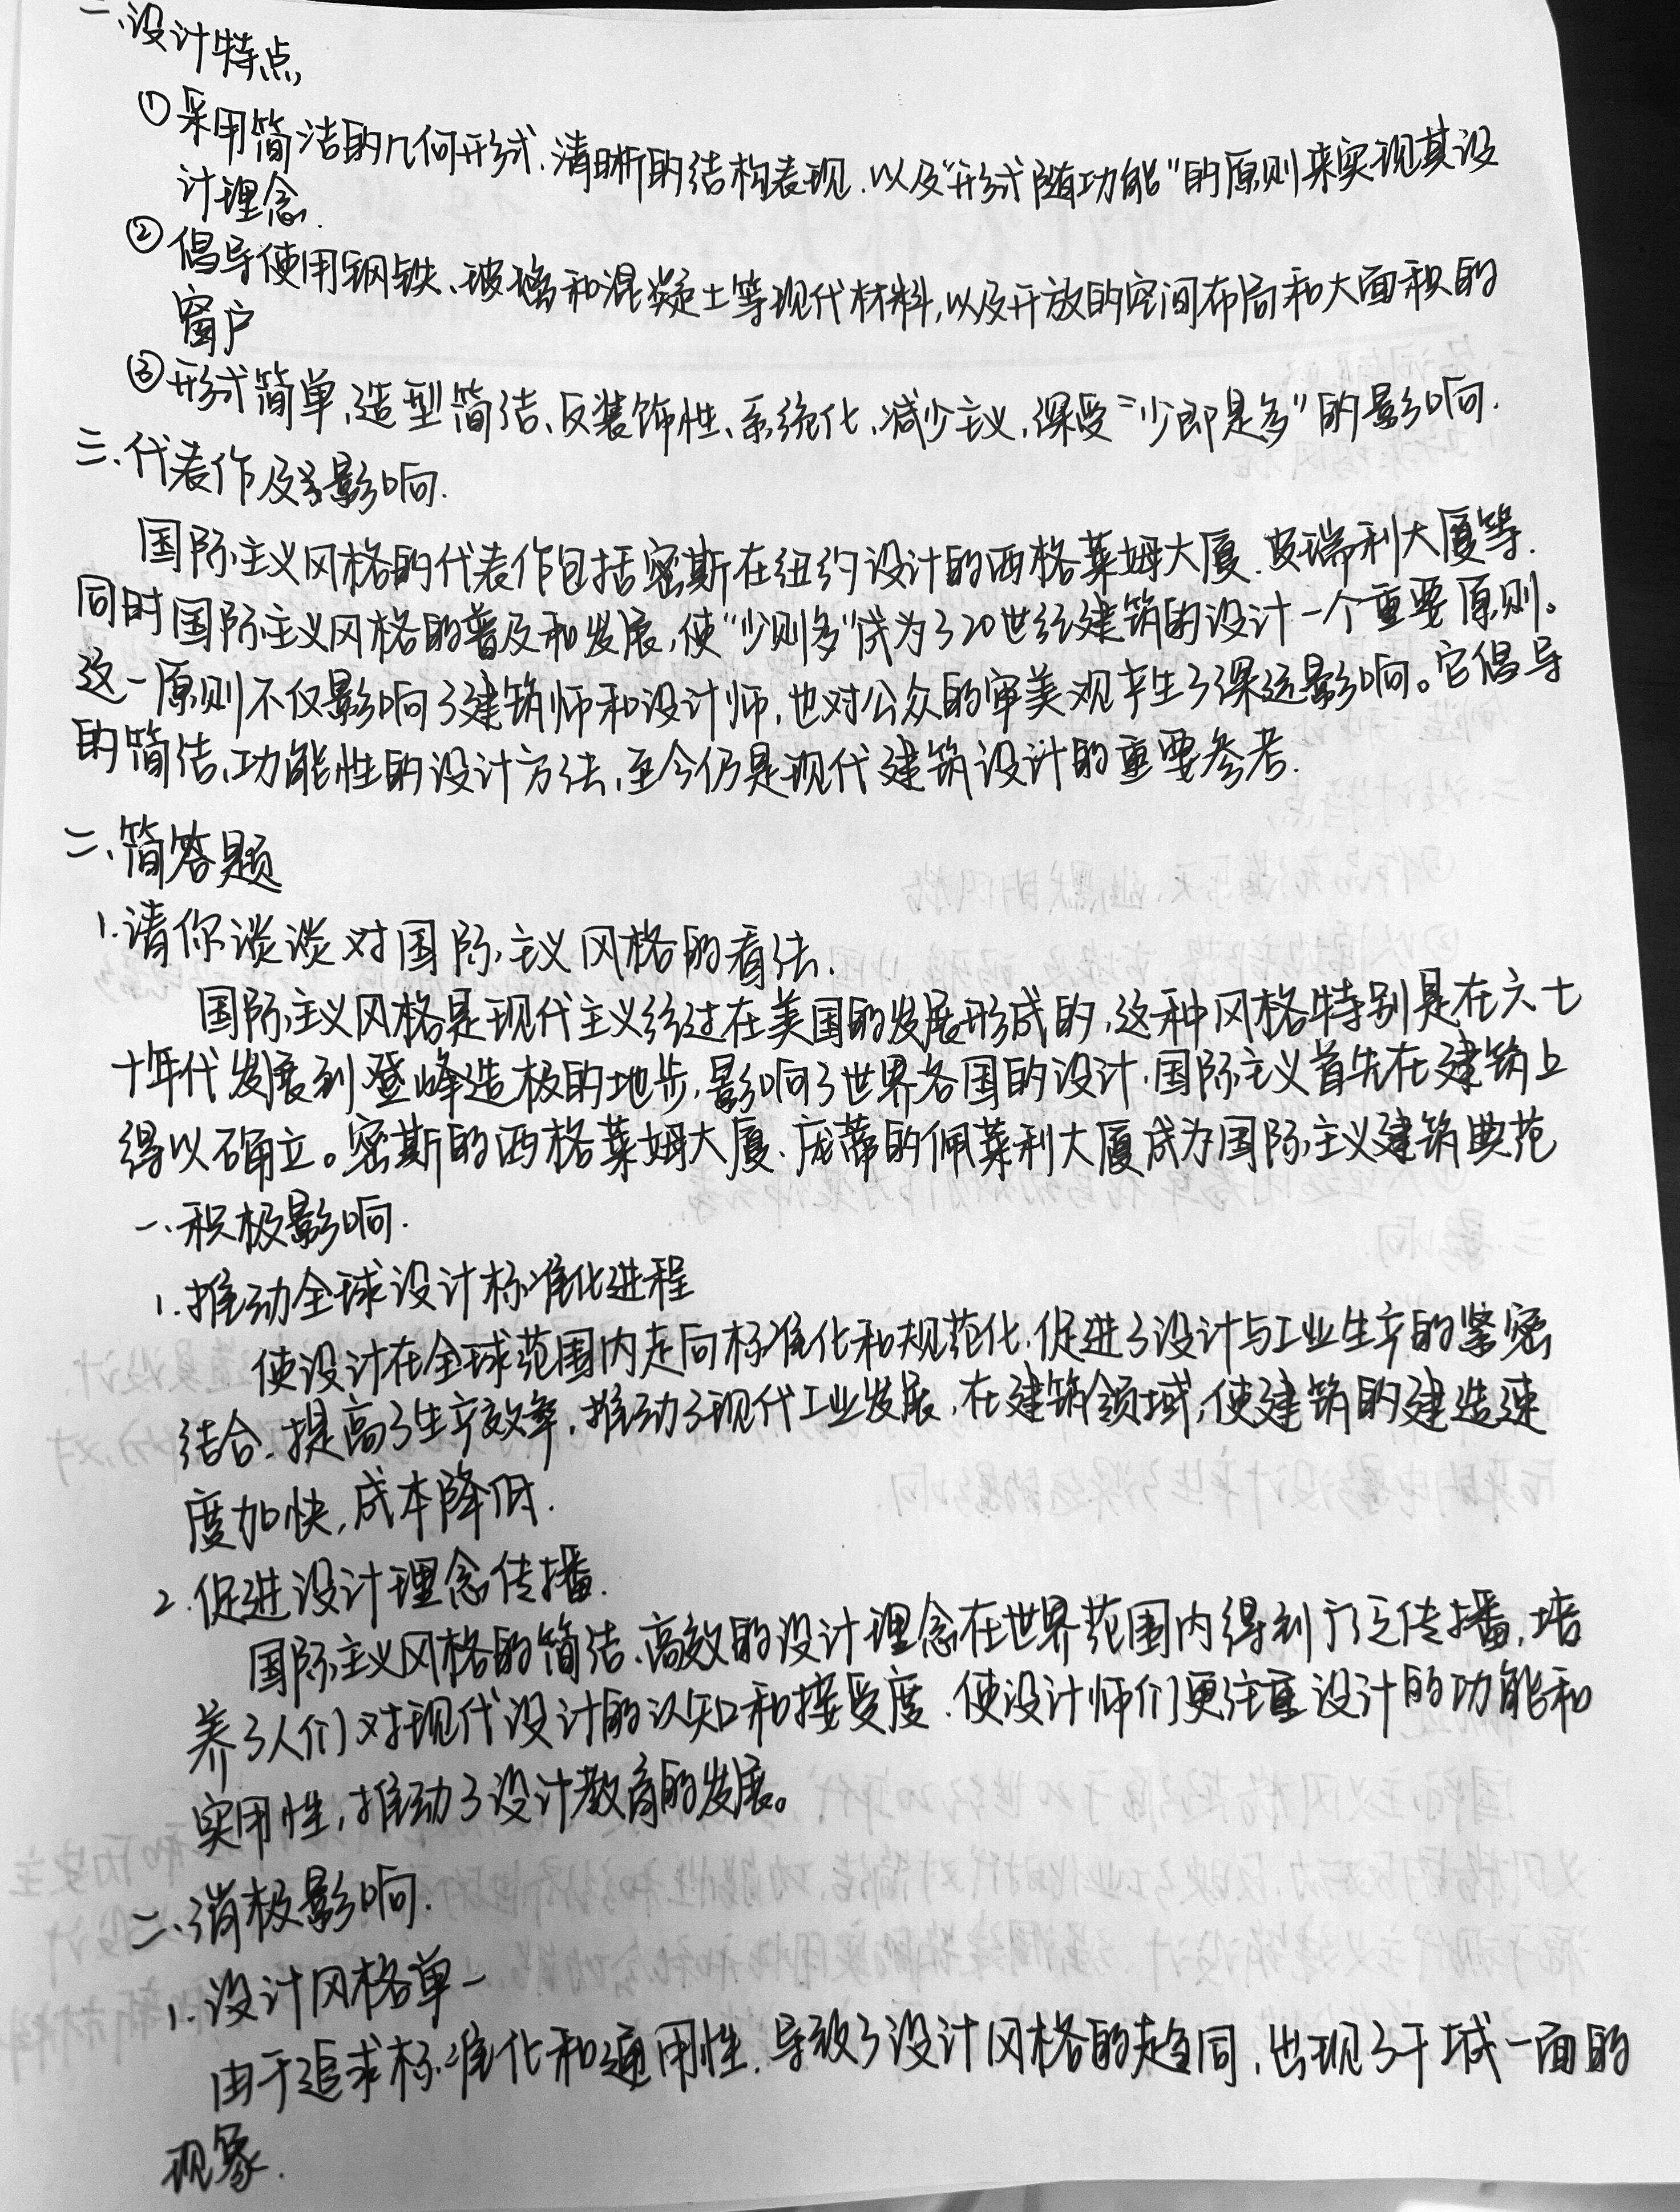 二、设计特点
①采用简洁的几何形式、清晰的结构表现、以及“形式随功能”的原则来实现其设
计理念.
②倡导使用钢铁、玻璃和混凝土等现代材料,以及开放的空间布局和大面积的
窗户
③形式简单、造型简洁、反装饰性、系统化、减少主义,深受“少即是多”的影响.
三、代表作及影响.
国际主义风格的代表作包括密斯在纽约设计的西格莱姆大厦、皮瑞利大厦等.
同时国际主义风格的普及和发展,使“少则多”成为了20世纪建筑的设计一个重要原则。
这一原则不仅影响了建筑师和设计师,也对公众的审美观产生了深远影响。它倡导
的简洁、功能性的设计方法,至今仍是现代建筑设计的重要参考.
二、简答题
1.请你谈谈对国际主义风格的看法.
国际主义风格是现代主义经过在美国的发展形成的,这种风格特别是在六七
十年代发展到登峰造极的地步,影响了世界各国的设计,国际主义首先在建筑上
得以确立。密斯的西格莱姆大厦、庞蒂的佩莱利大厦成为国际主义建筑典范
一、积极影响.
1.推动全球设计标准化进程
使设计在全球范围内走向标准化和规范化,促进了设计与工业生产的紧密
结合,提高了生产效率,推动了现代工业发展,在建筑领域,使建筑的建造速
度加快,成本降低.
2.促进设计理念传播.
国际主义风格的简洁、高效的设计理念在世界范围内得到广泛传播,培
养了人们对现代设计的认知和接受度,使设计师们更注重设计的功能和
实用性,推动了设计教育的发展。
二、消极影响.
1.设计风格单一
由于追求标准化和通用性,导致了设计风格的趋同,出现了千城一面的
现象.